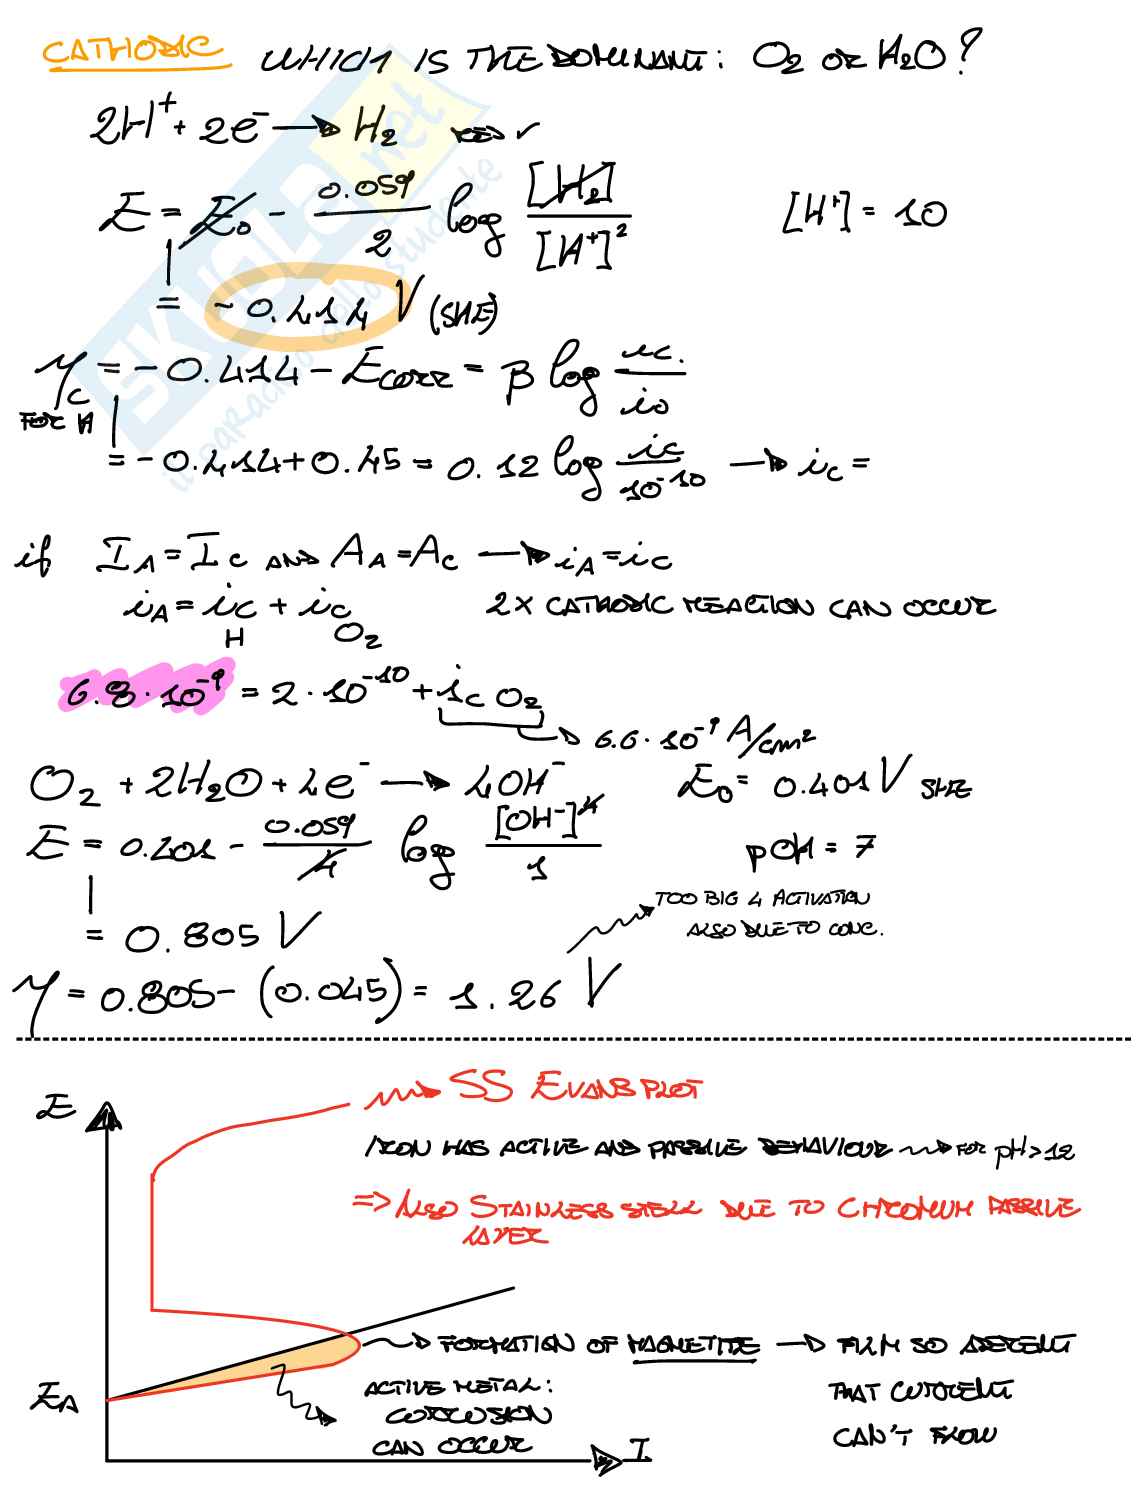 CATHODIC WHICH IS THE DOMINANT: O₂ OR H₂O?
2H⁺ + 2e⁻ → H₂ RED ✓
E = E₀ - 0.059/2 log [H₂]/[H⁺]² [H⁺] = 10
= -0.414 V (SHE)
η_C = -0.414 - Ecorr = β log ic./i₀
FOR H
= -0.414+0.45 = 0.12 log ic/10⁻¹⁰ → ic =
if I_A = I_C AND A_A = A_C → i_A = i_C
i_A = i_C H + i_C O₂ 2X CATHODIC REACTION CAN OCCUR
6.8·10⁻⁹ = 2·10⁻¹⁰ + i_C O₂
→ 6.6·10⁻⁹ A/cm²
O₂ + 2H₂O + 4e⁻ → 4OH⁻ E₀ = 0.401 V SHE
E = 0.401 - 0.059/4 log [OH⁻]⁴/1 pOH = 7
TOO BIG 4 ACTIVATION
= 0.805 V ALSO DUE TO CONC.
η = 0.805 - (0.045) = 1.26 V
E SS EVANS PLOT
IRON HAS ACTIVE AND PASSIVE BEHAVIOUR → FOR pH > 12
=> ALSO STAINLESS STELL DUE TO CHROMIUM PASSIVE
LAYER
→ FORMATION OF MAGNETITE → FILM SO ADERENT
E_A ACTIVE METAL: THAT CURRENT
CORROSION CAN'T FLOW
CAN OCCUR
I
SKUOLA.net
il paradiso dello studente